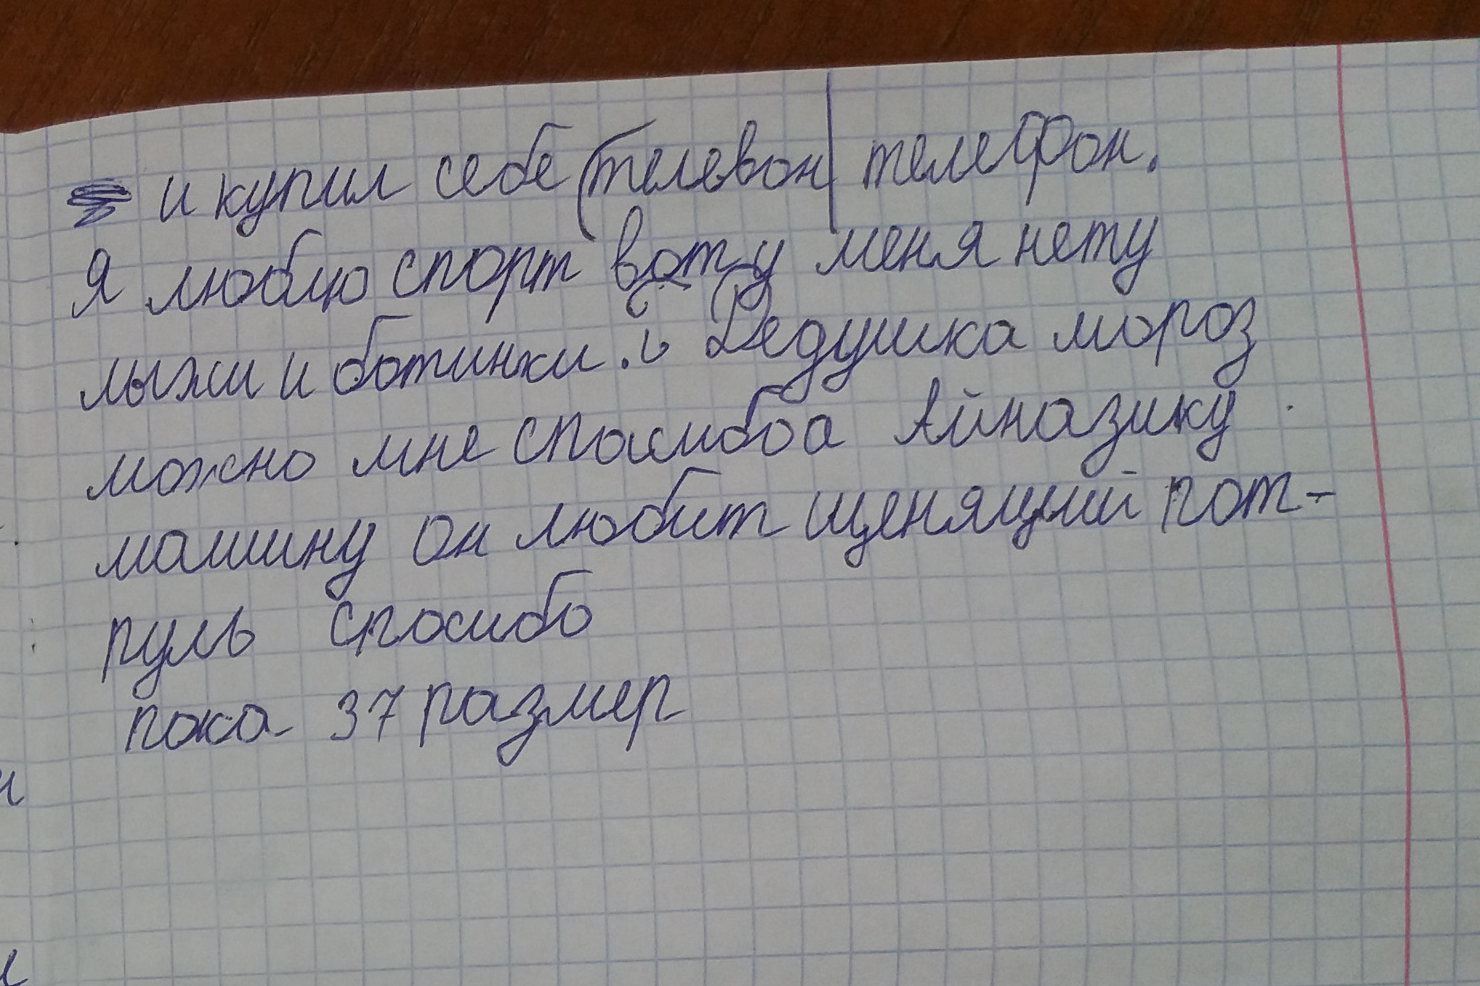 и купил себе (телевон) телефон.
я люблю спорт вот у меня нету
лыжи и ботинки. Дедушка мороз
можно мне спасибоа Айназику
машину он любит щенящий пот-
руль спосибо
пока 37 размер